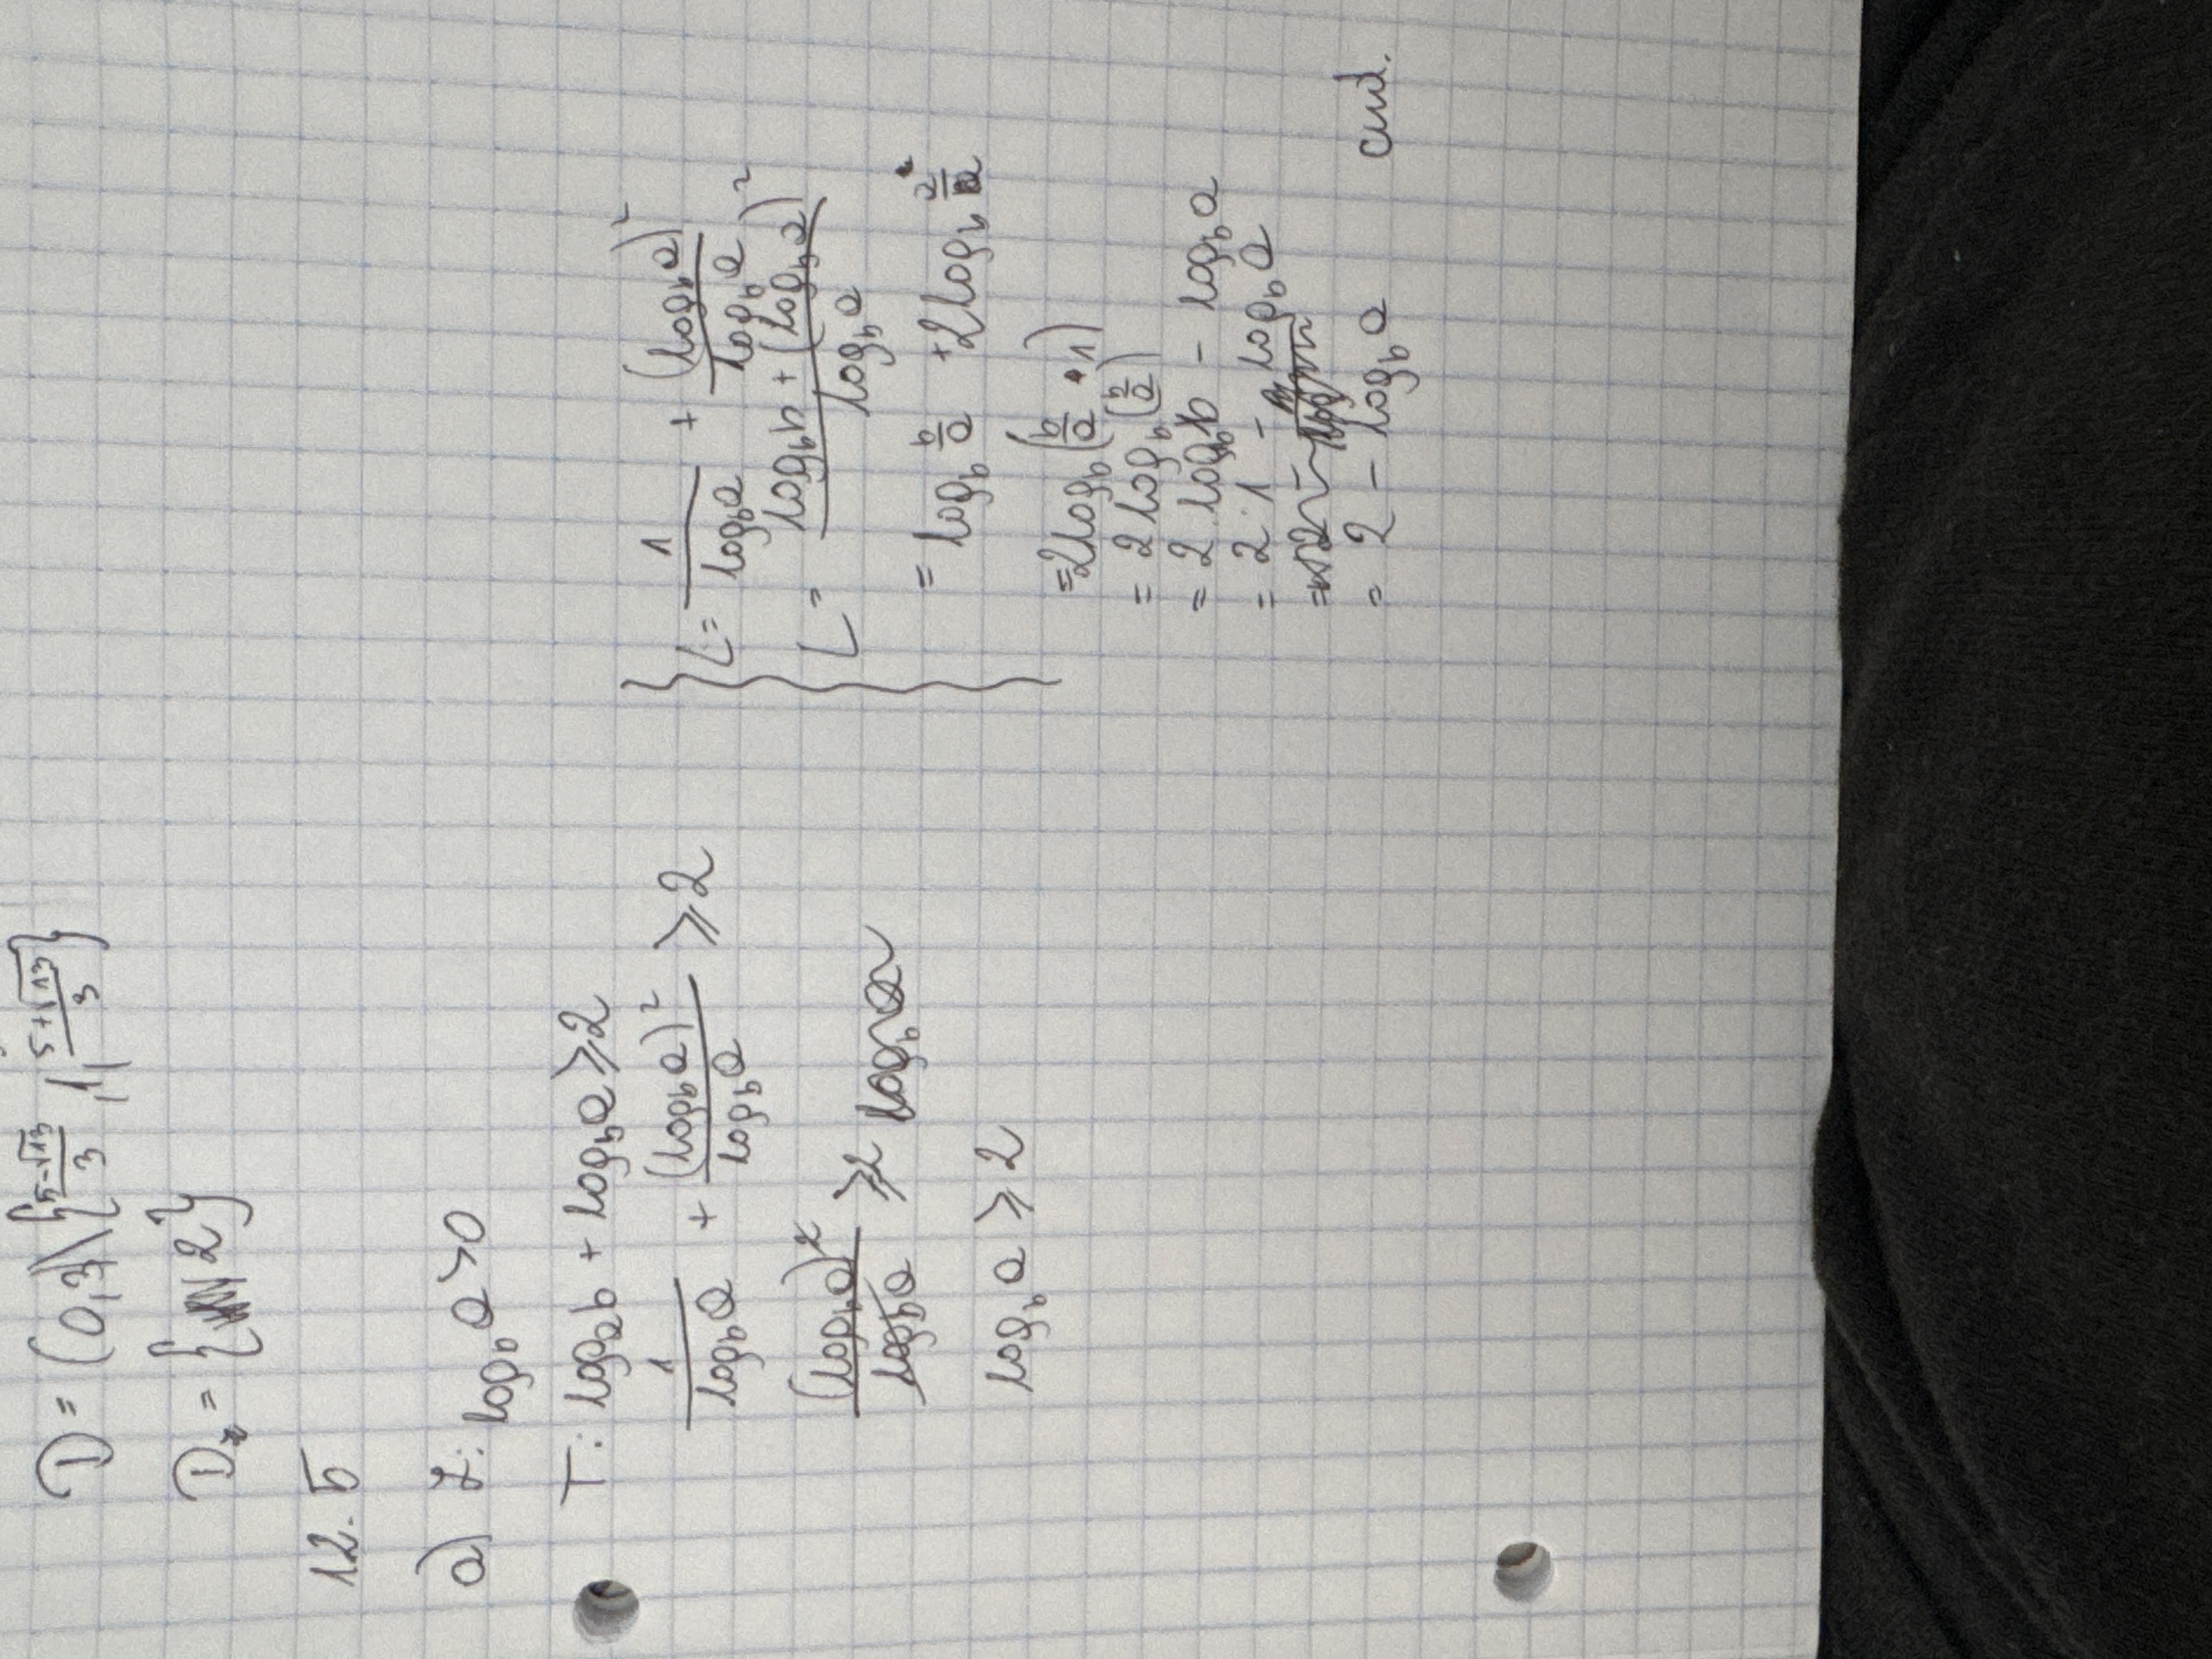 D = (0,3) \ {5-√13/3, 1, 5+√13/3}
D = {2}
12.5
a) Z: log_b a > 0
T: log_a b + log_b a ≥ 2
1/log_b a + (log_b a)²/log_b a ≥ 2
(log_b a)²/log_b a ≥ 2 log_b a
log_b a ≥ 2
L = 1/log_b a + (log_b a)²/log_b a
L = log_b b + (log_b a)²/log_b a
= log_b b/a + 2 log_b
= 2 log_b (b/a · 1)
= 2 log_b (b/a)
= 2 · log_b b - log_b a
= 2 · 1 - log_b a
= 2 - log_b a
cnd.